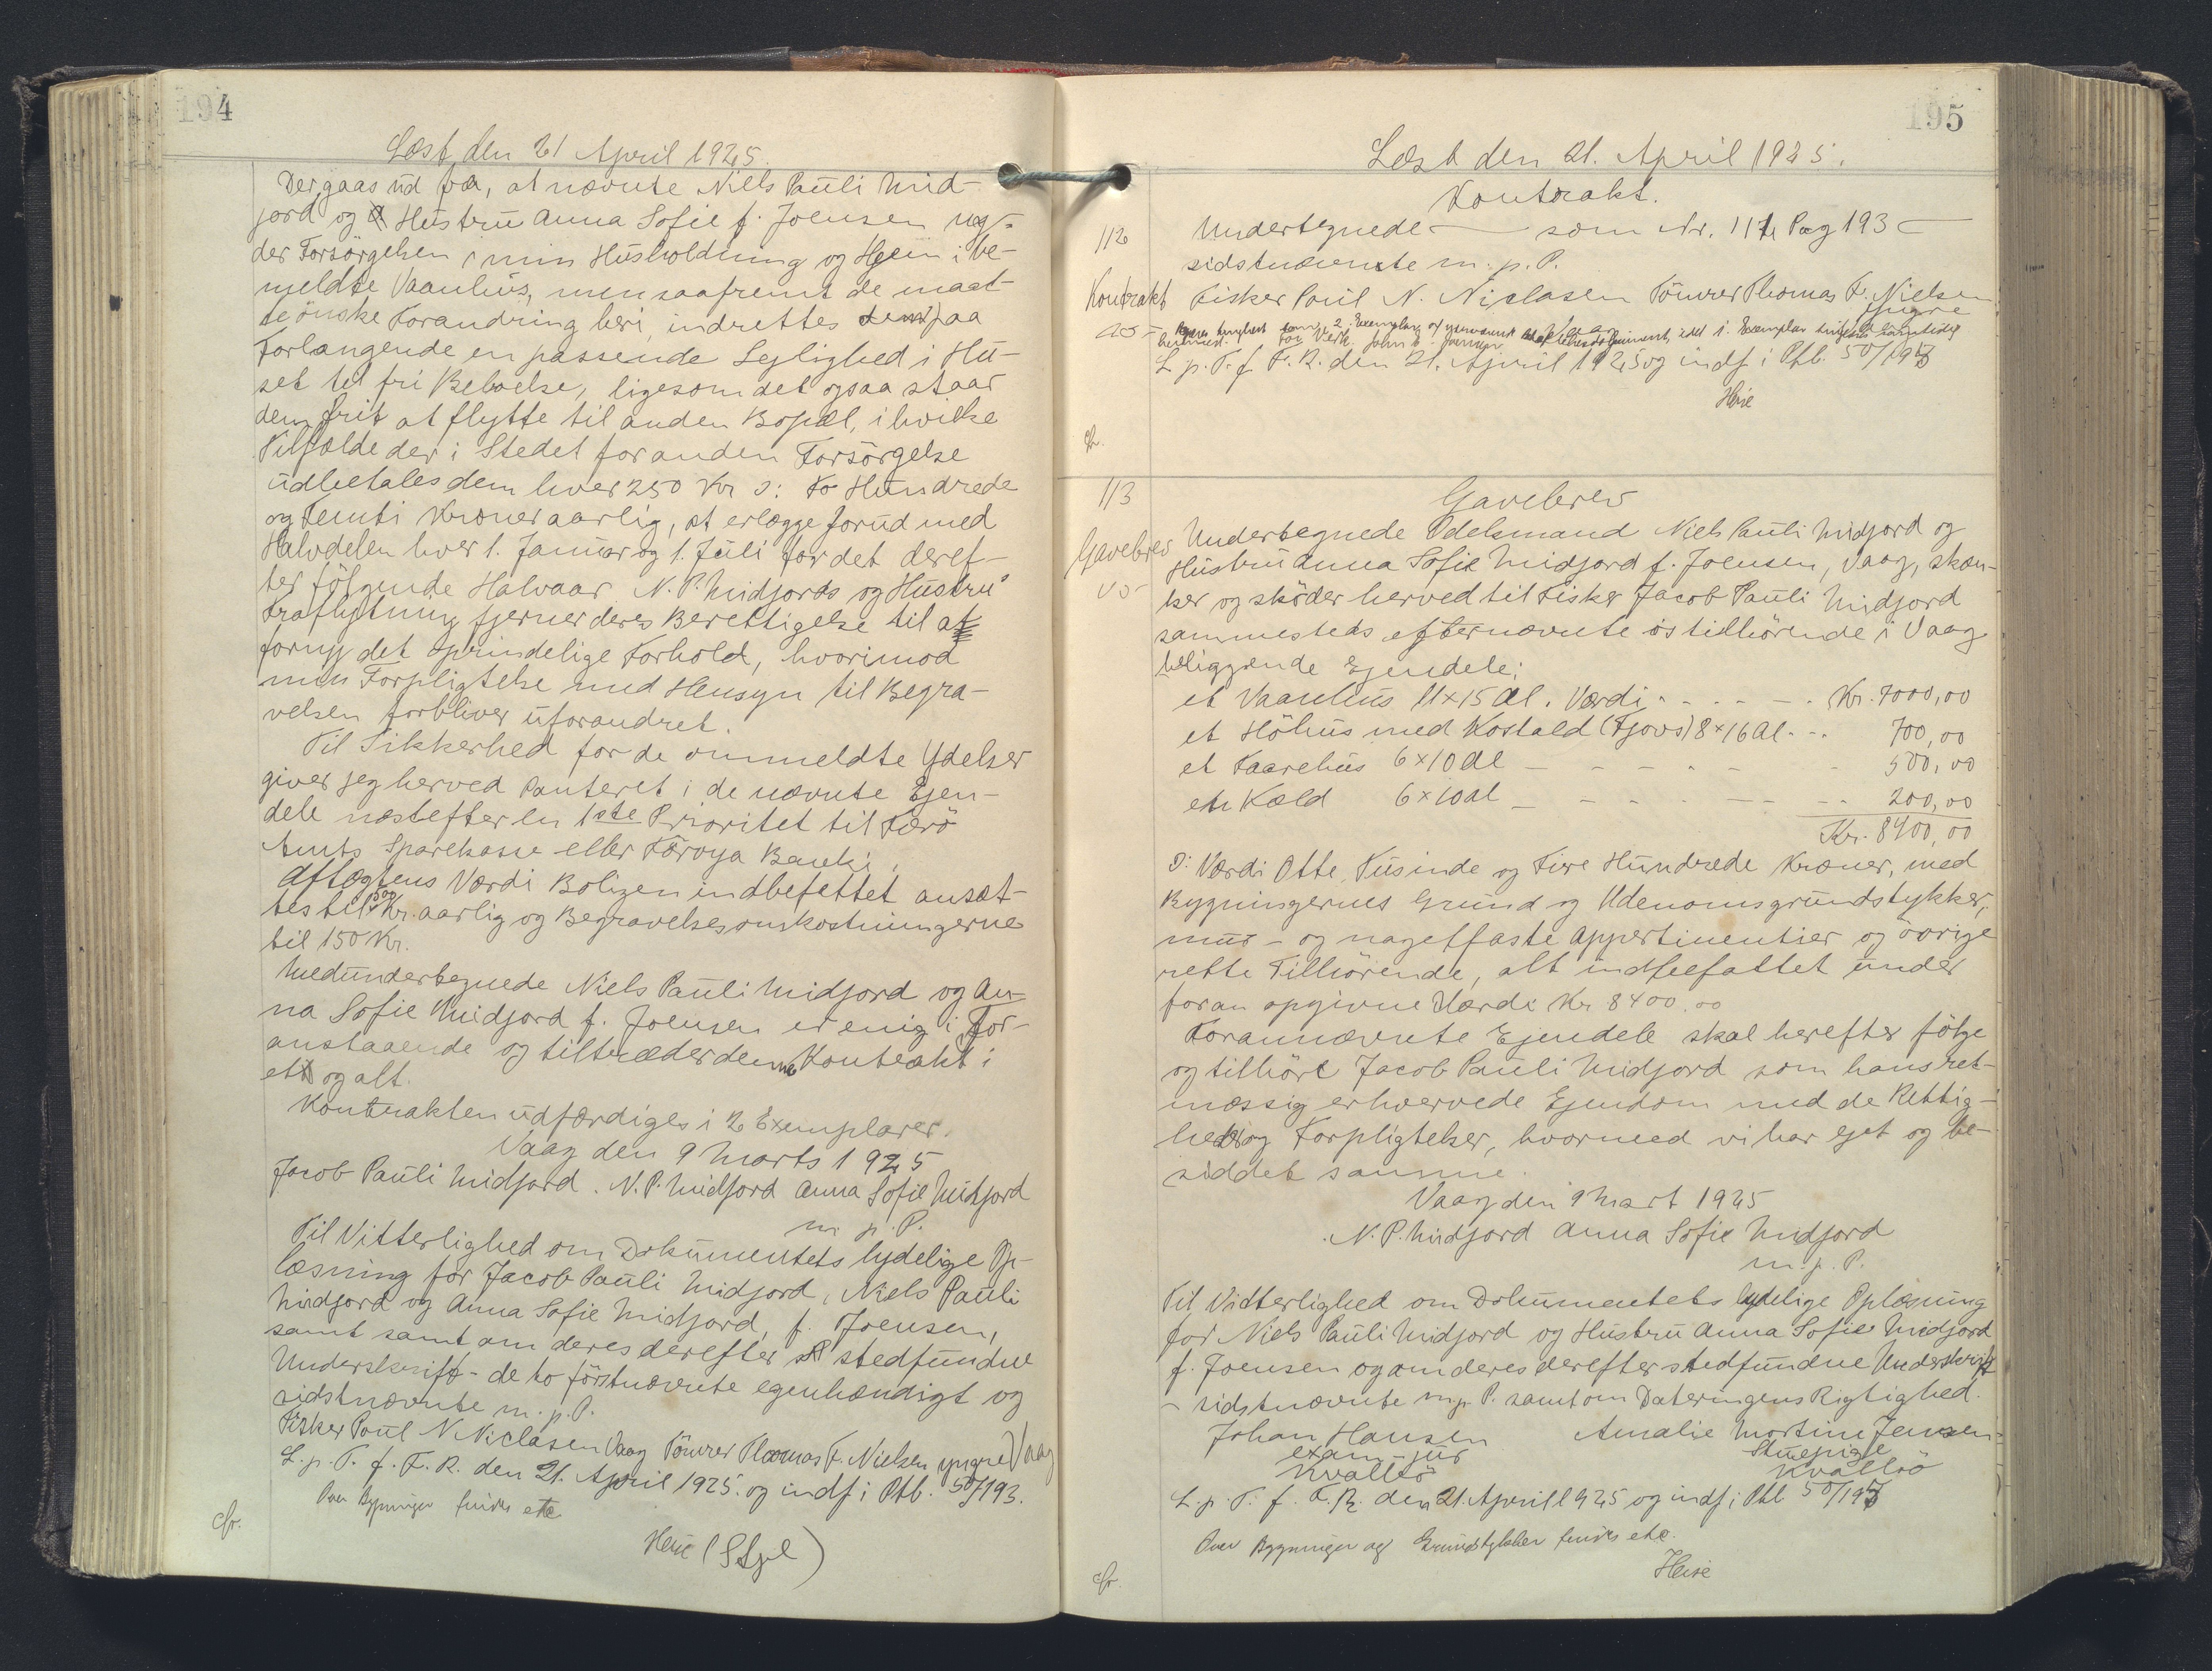 194
Læst den 21 April 1925.
Der gaas ud fra, at nævnte Niels Pauli Mid-
jord og Hustru Anna Sofie f. Joensen ny-
der Forsörgelsen i min Husholdning og Hjem i be-
meldte Vaanhus, men saafremt de maat-
te önske Forandring heri, indrettes dem paa
Forlangende en passende Lejlighed i Hu-
set til fri Beboelse, ligesom det ogsaa staar
dem frit at flytte til anden Bopæl, i hvilke
Tilfælde der i Stedet for anden Forsörgelse
udbetales dem hver 250 Kr ɔ: To Hundrede
og Femti Kroner aarlig, at erlægge forud med
Halvdelen hver 1. Januar og 1. Juli for det deref-
ter fölgende Halvaar. N. P. Midjords og Hustru's
Fraflytning fjerner deres Berettigelse til at
forny det oprindelige Forhold, hvorimod
min Forpligtelse med Hensyn til Begra-
velsen forbliver uforandret.
Til Sikkerhed for de ommeldte Ydelser
giver jeg herved Panteret i de nævnte Ejen-
dele næstefter en 1ste Prioritet til Færö
Amts Sparekasse eller Föroya Banki.
Aftægtens Værdi Boligen indbefattet ansæt-
tes til 500 Kr. aarlig og Begravelsesomkostningerne
til 150 Kr.
Medundertegnede Niels Pauli Midjord og An-
na Sofie Midjord f. Joensen er enig i For-
anstaaende og tiltræder denne Kontrakt i
et og alt.
Kontrakten udfærdiges i 2 Exemplarer.
Vaag den 9 Marts 1925
Jacob Pauli Midjord. N. P. Midjord Anna Sofie Midjord
m. p. P.
Til Vitterlighed om Dokumentets lydelige Op-
læsning for Jacob Pauli Midjord, Niels Pauli
Midjord og Anna Sofie Midjord, f. Joensen,
samt samt om deres derefter stedfundne
Underskrift - de to förstnævnte egenhændigt og
sidstnævnte m. p. P.
Fisker Poul N. Niclasen Vaag Tömrer Thomas F. Nielsen yngre Vaag
L. p. T. f. F. R. den 21. April 1925. og indf i Ptb. 50/193.
Over Bygninger findes etc
Heise (Stpl)
cfr.
195
Læst den 21. April 1925.
Kontrakt.
112
Undertegnede — som Nr. 111 Pag 193 —
sidstnævnte m. p. P.
Kontrakt
Fisker Poul N. Niclasen Tömrer Thomas F. Nielsen
yngre
L. p. T. f. F. R. den 21. April 1925 og indf i Ptb. 50/193
Heise
cfr.
113
Gavebrev
Gavebrev
Undertegnede Odelsmand Niels Pauli Midjord og
Hustru Anna Sofie Midjord f. Joensen, Vaag, skæn-
ker og sköder herved til Fisker Jacob Pauli Midjord
sammesteds efternævnte os tilhörende i Vaag
beliggende Ejendele:
et Vaanhus 11 x 15 Al. Værdi - - - - Kr. 7000,00
et Höhus med Kostald (Fjovs) 8 x 16 Al - - 700,00
et Faarehus 6 x 10 Al - - - - - 500,00
et Kæld 6 x 10 Al - - - - - 200,00
Kr. 8400,00
ɔ: Værdi Otte Tusinde og Fire Hundrede Kroner, med
Bygningernes Grund og Udenomsgrundstykker,
mur - og nagelfaste Appertinentier og övrige
rette Tilhörende, alt indbefattet under
foran opgivne Værdi Kr 8400.00
Forannævnte Ejendele skal herefter fölge
og tilhöre Jacob Pauli Midjord som hans ret-
mæssig erhvervede Ejendom med de Rettig-
heder og Forpligtelser, hvormed vi har ejet og be-
siddet samme.
Vaag den 9 Mart 1925
N. P. Midjord Anna Sofie Midjord
m. p. P.
Til Vidterlighed om Dokumentets lydelige Oplæsning
for Niels Pauli Midjord og Hustru Anna Sofie Midjord
f. Joensen og om deres derefter stedfundne Underskrift
- sidstnævnte m. p. P. samt om Dateringens Rigtighed.
Johan Hansen Amalie Mortine Jensen
exam - jur Stuepige
Kvalbö Kvalbö
L. p. T. f. F. R. den 21. April 1925 og indf i Ptb 50/193
Over Bygninger og Grundstykker findes etc.
Heise
cfr.